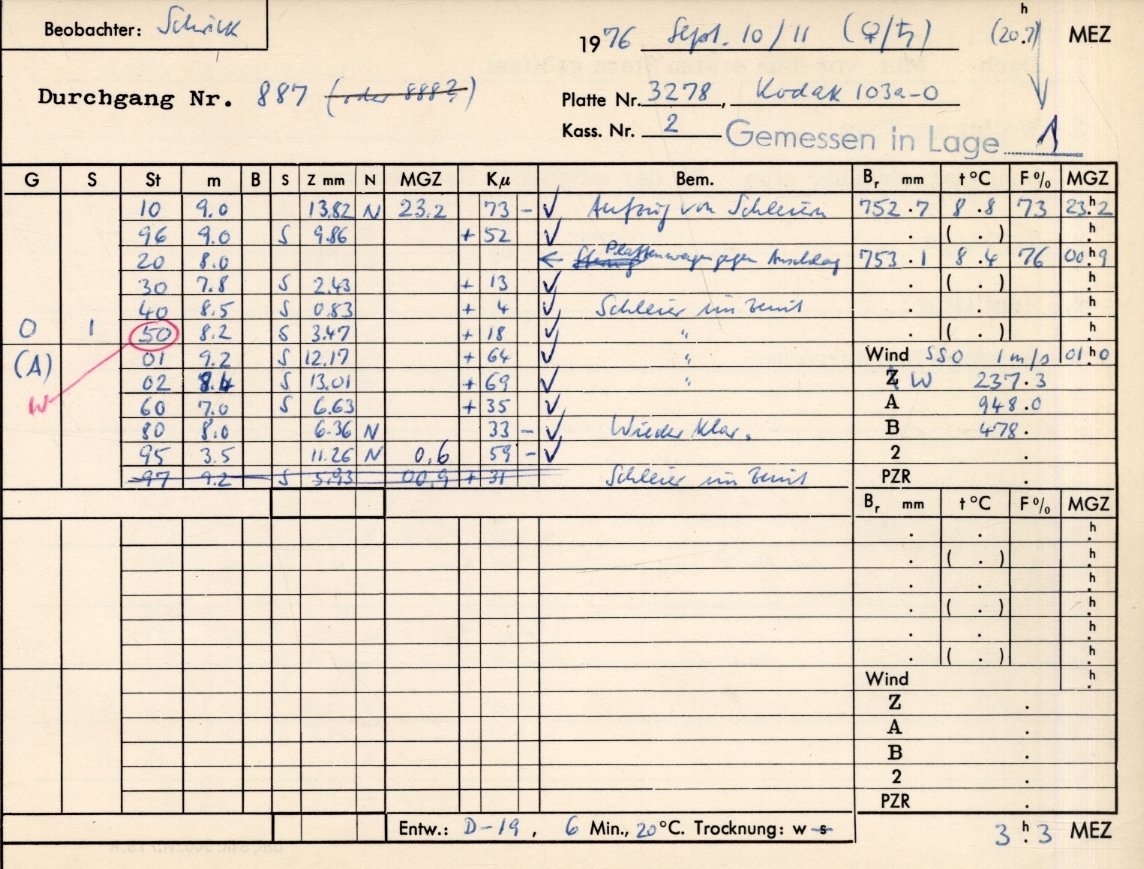 Beobachter: Schirk
1976 Sept. 10/11 (♀/♄) (20.7h) MEZ
Durchgang Nr. 887 (oder 888?)
Platte Nr. 3278, Kodak 103a-O
Kass. Nr. 2 Gemessen in Lage 1
G S St m B S Z mm N MGZ Kμ Bem. Br mm t °C F % MGZ
10 9.0 13.82 N 23.2 73 - ✓ Aufzug von Schleiern 752.7 8.8 73 23h.2
96 9.0 S 9.86 + 52 ✓ . ( . ) h.
20 8.0 ← Plattenwagen gegen Anschlag 753.1 8.4 76 00h.9
30 7.8 S 2.43 + 13 ✓ . ( . ) h.
40 8.5 S 0.83 + 4 ✓ Schleier im Zenit . . h.
0 1 50 8.2 S 3.47 + 18 ✓ " . ( . ) h.
(A) 01 9.2 S 12.17 + 64 ✓ " Wind SSO 1 m/s 01h.0
02 8.4 S 13.01 + 69 ✓ " Z W 237.3
W 60 7.0 S 6.63 + 35 ✓ A 948.0
80 8.0 6.36 N 33 - ✓ Wieder klar. B 478.
95 3.5 11.26 N 0,6 59 - ✓ 2 .
97 9.2 S 5.93 00,9 + 31 Schleier im Zenit PZR .
Br mm t °C F % MGZ
. . h.
. ( . ) h.
. . h.
. ( . ) h.
. . h.
. ( . ) h.
Wind h.
Z .
A .
B .
2 .
PZR .
Entw.: D-19, 6 Min., 20 °C. Trocknung: w s
3h.3 MEZ